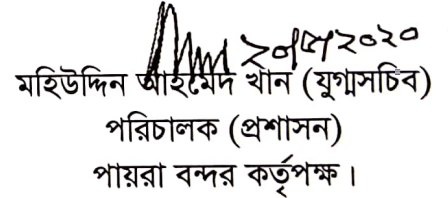 ২০/৫/২০২০
মহিউদ্দিন আহমেদ খান (যুগ্মসচিব)
পরিচালক (প্রশাসন)
পায়রা বন্দর কর্তৃপক্ষ।